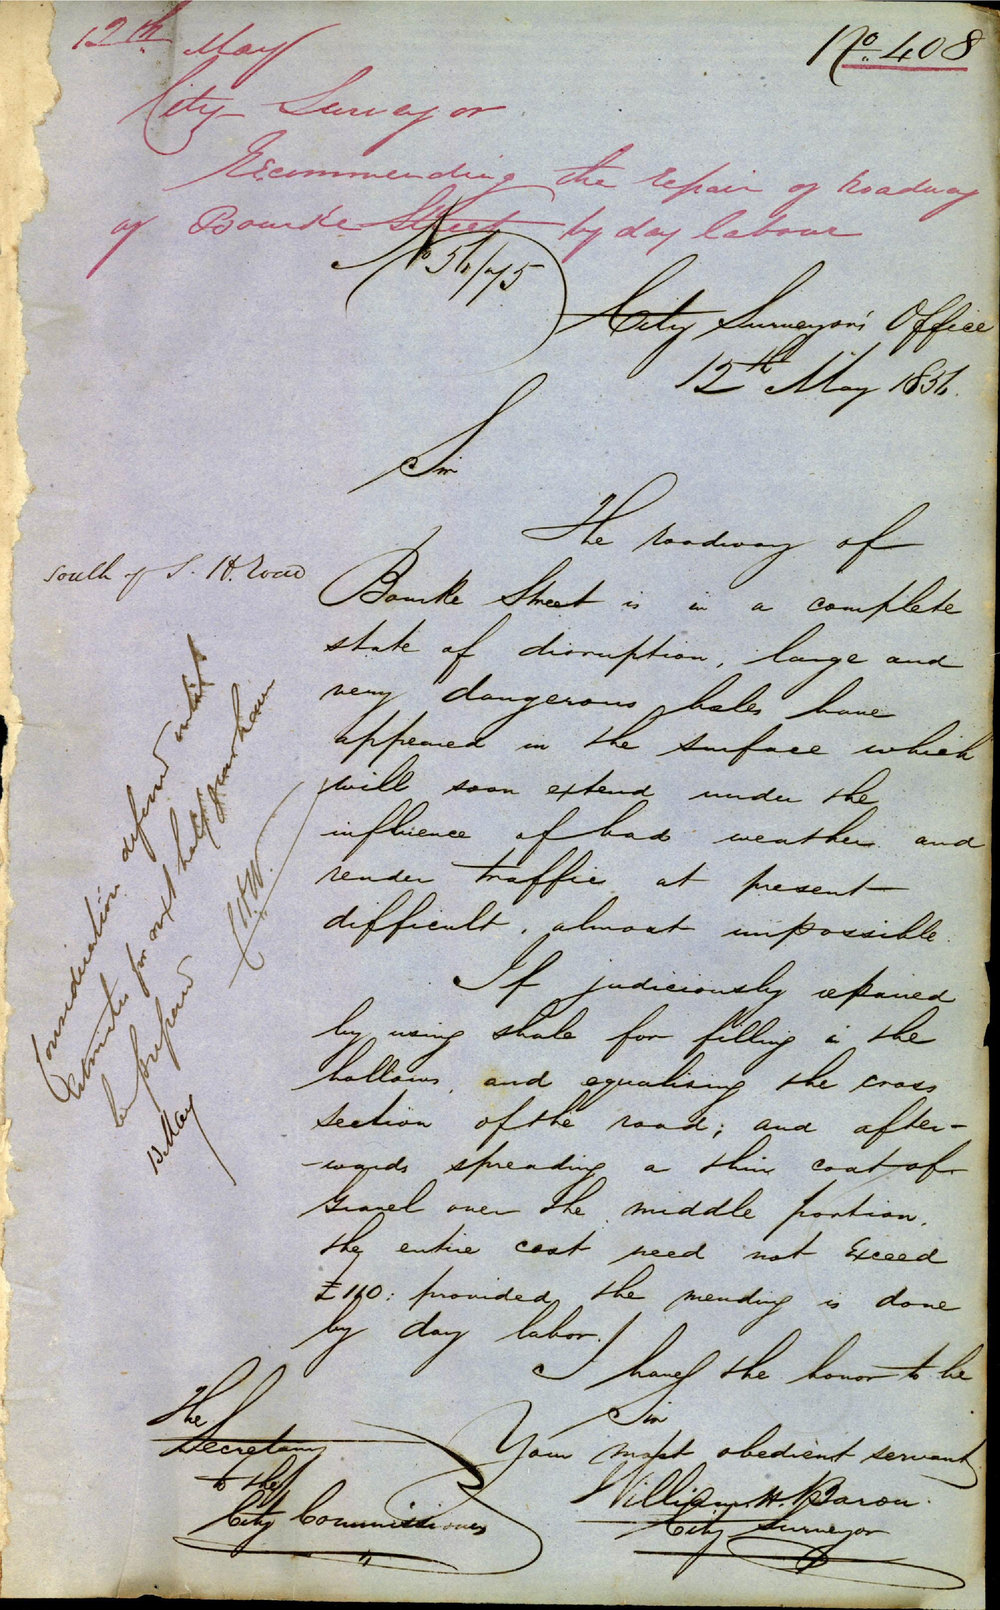 No. 408
12th May
City Surveyor
Recommending the repair of roadway
of Bourke Street by day labour
No 56/175
City Surveyor's Office
12th May 1856.
Sir
The roadway of
south of S. H. Road
Bourke Street is in a complete
state of disruption, large and
very dangerous holes have
appeared in the surface which
will soon extend under the
influence of bad weather and
render traffic at present
difficult, almost impossible.
If judiciously repaired
by using shale for filling in the
hollows, and equalising the cross
section of the road; and after-
-wards spreading a thin coat of
gravel over the middle portion,
the entire cost need not exceed
£110: provided the mending is done
by day labor.
Consideration deferred until
Estimates for next half year have
been prepared
13 May
I have the honor to be
Sir
Your most obedient servant
William H. Baron.
City Surveyor
The
Secretary
to the
City Commissioners